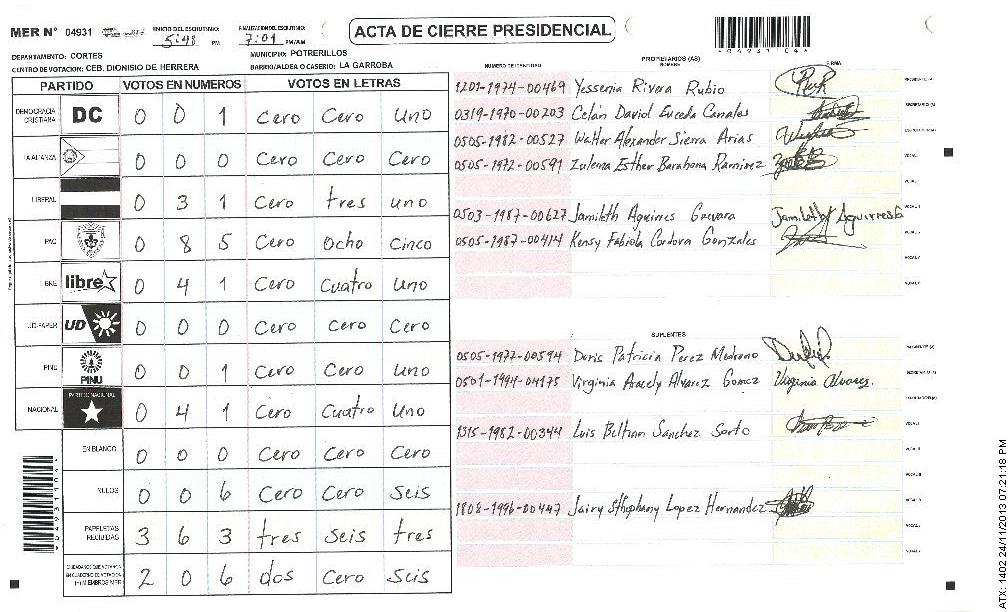 MER N° 04931
INICIO DEL ESCRUTINIO: 5:48 PM
FINALIZACION DEL ESCRUTINIO: 7:01 PM/AM
ACTA DE CIERRE PRESIDENCIAL
DEPARTAMENTO: CORTES
MUNICIPIO: POTRERILLOS
CENTRO DE VOTACION: CEB. DIONISO DE HERRERA
BARRIO/ALDEA O CASERIO: LA GARROBA
PARTIDO VOTOS EN NUMEROS VOTOS EN LETRAS
DEMOCRACIA CRISTIANA DC 0 0 1 Cero Cero Uno
LA ALIANZA 0 0 0 Cero Cero Cero
LIBERAL 0 3 1 Cero tres uno
PAC 0 8 5 Cero Ocho Cinco
LIBRE libre 0 4 1 Cero Cuatro Uno
UD-FAPER UD 0 0 0 Cero Cero Cero
PINU PINU 0 0 1 Cero Cero Uno
NACIONAL PARTIDO NACIONAL 0 4 1 Cero Cuatro Uno
EN BLANCO 0 0 0 Cero Cero Cero
NULOS 0 0 6 Cero Cero Seis
PAPELETAS RECIBIDAS 3 6 3 tres seis tres
CIUDADANOS QUE VOTARON EN CUADERNO DE VOTACION 2 0 6 dos Cero Seis
NUMERO DE IDENTIDAD
PROPIETARIOS (AS)
NOMBRE
FIRMA
1201-1974-00469 Yessenia Rivera Rubio
0319-1970-00203 Celán David Euceda Canales
0505-1982-00527 Walter Alexander Sierra Arias
0505-1972-00591 Zulema Esther Barahona Ramirez
0503-1987-00627 Jamileth Aguirres Guevara Jamileth Aguirres
0505-1987-00414 Kensy Fabiola Cordova Gonzales
SUPLENTES
0505-1977-00594 Doris Patricia Perez Medrano
0501-1994-04175 Virginia Aracely Alvarez Gomez Virginia Alvarez.
1315-1982-00344 Luis Beltran Sanchez Sorto
1808-1996-00447 Jairy Sthephany Lopez Hernandez
04931104
ATX: 1402 24/11/2013 07:21:18 PM